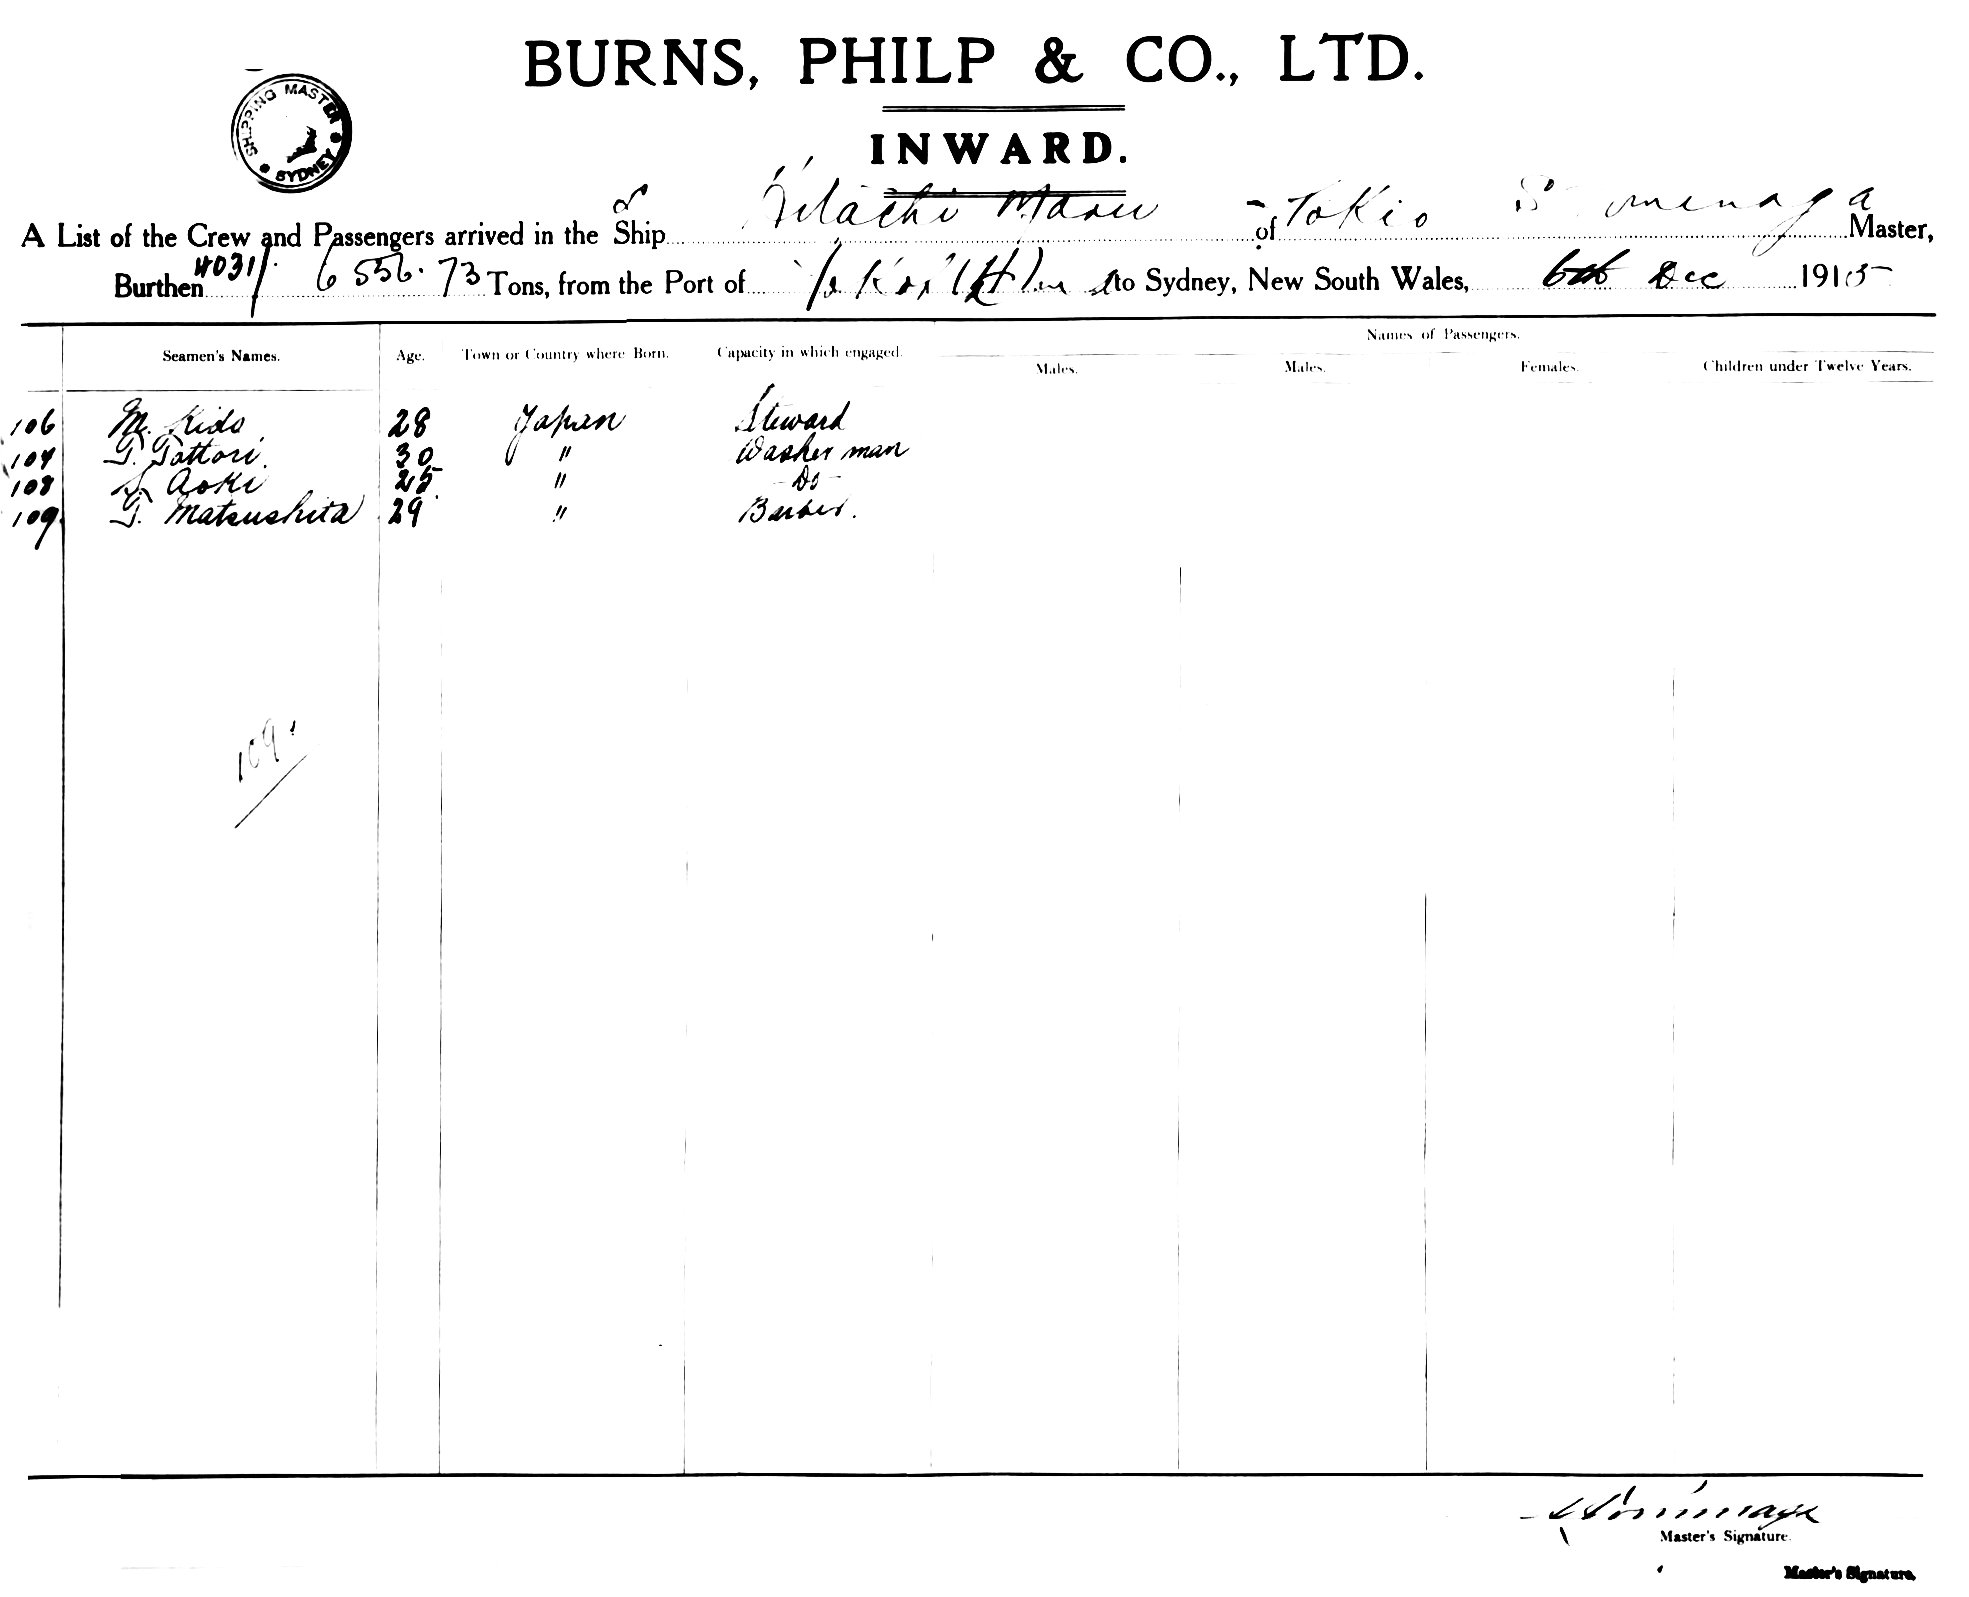 BURNS, PHILP & CO., LTD.
SHIPPING MASTER
SYDNEY
INWARD.
A List of the Crew and Passengers arrived in the Ship Hitachi Maru of Tokio S. Tominaga Master,
Burthen 4031/ 6556.73 Tons, from the Port of to Sydney, New South Wales, 6th Dec 1915
Names of Passengers.
Seamen's Names. Age. Town or Country where Born. Capacity in which engaged. Males. Males. Females. Children under Twelve Years.
106 M. Kido 28 Japan Steward
107 T. Tottori. 30 " Washer man
108 S. Aoki 25 " - Do -
109 T. Matsushita 29 " Barber.
109
S Tominaga
Master's Signature.
Master's Signature.